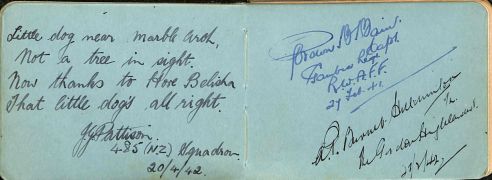 Little dog near Marble Arch,
Not a tree in sight.
Now thanks to Hore Belisha
That little dog's all right.
Pattison.
485 (NZ) Squadron
20/4/42.
Brown
Capt
R.W.A.F.F.
27 Feb 42
The Gordon Highlanders.